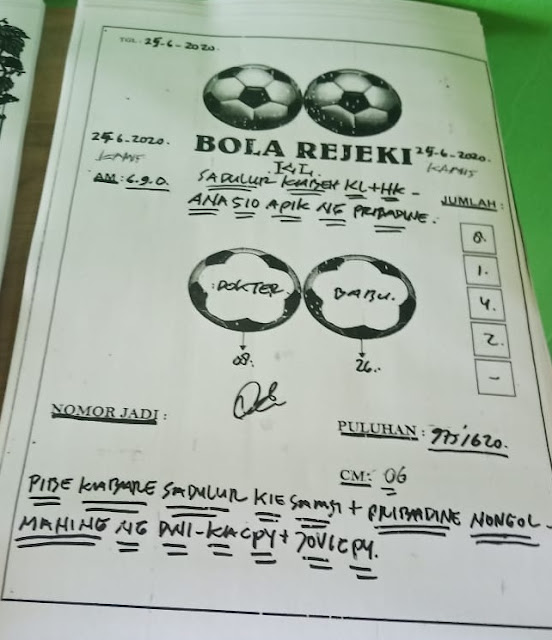 TGL : 25-6-2020.
25-6-2020.
BOLA REJEKI
25-6-2020.
KAMIS
KAMIS
AM : 6.9.0.
SADULUR KABEH KL + HK -
ANA SIO APIK NG PRIBADINE.
JUMLAH :
0.
1.
4.
2.
-
DOKTER.
BABU.
08.
26.
NOMOR JADI :
PULUHAN : 975/620.
CM : 06
PIBE KABARE SADULUR KIE + PRIBADINE NONGOL -
MANING NG